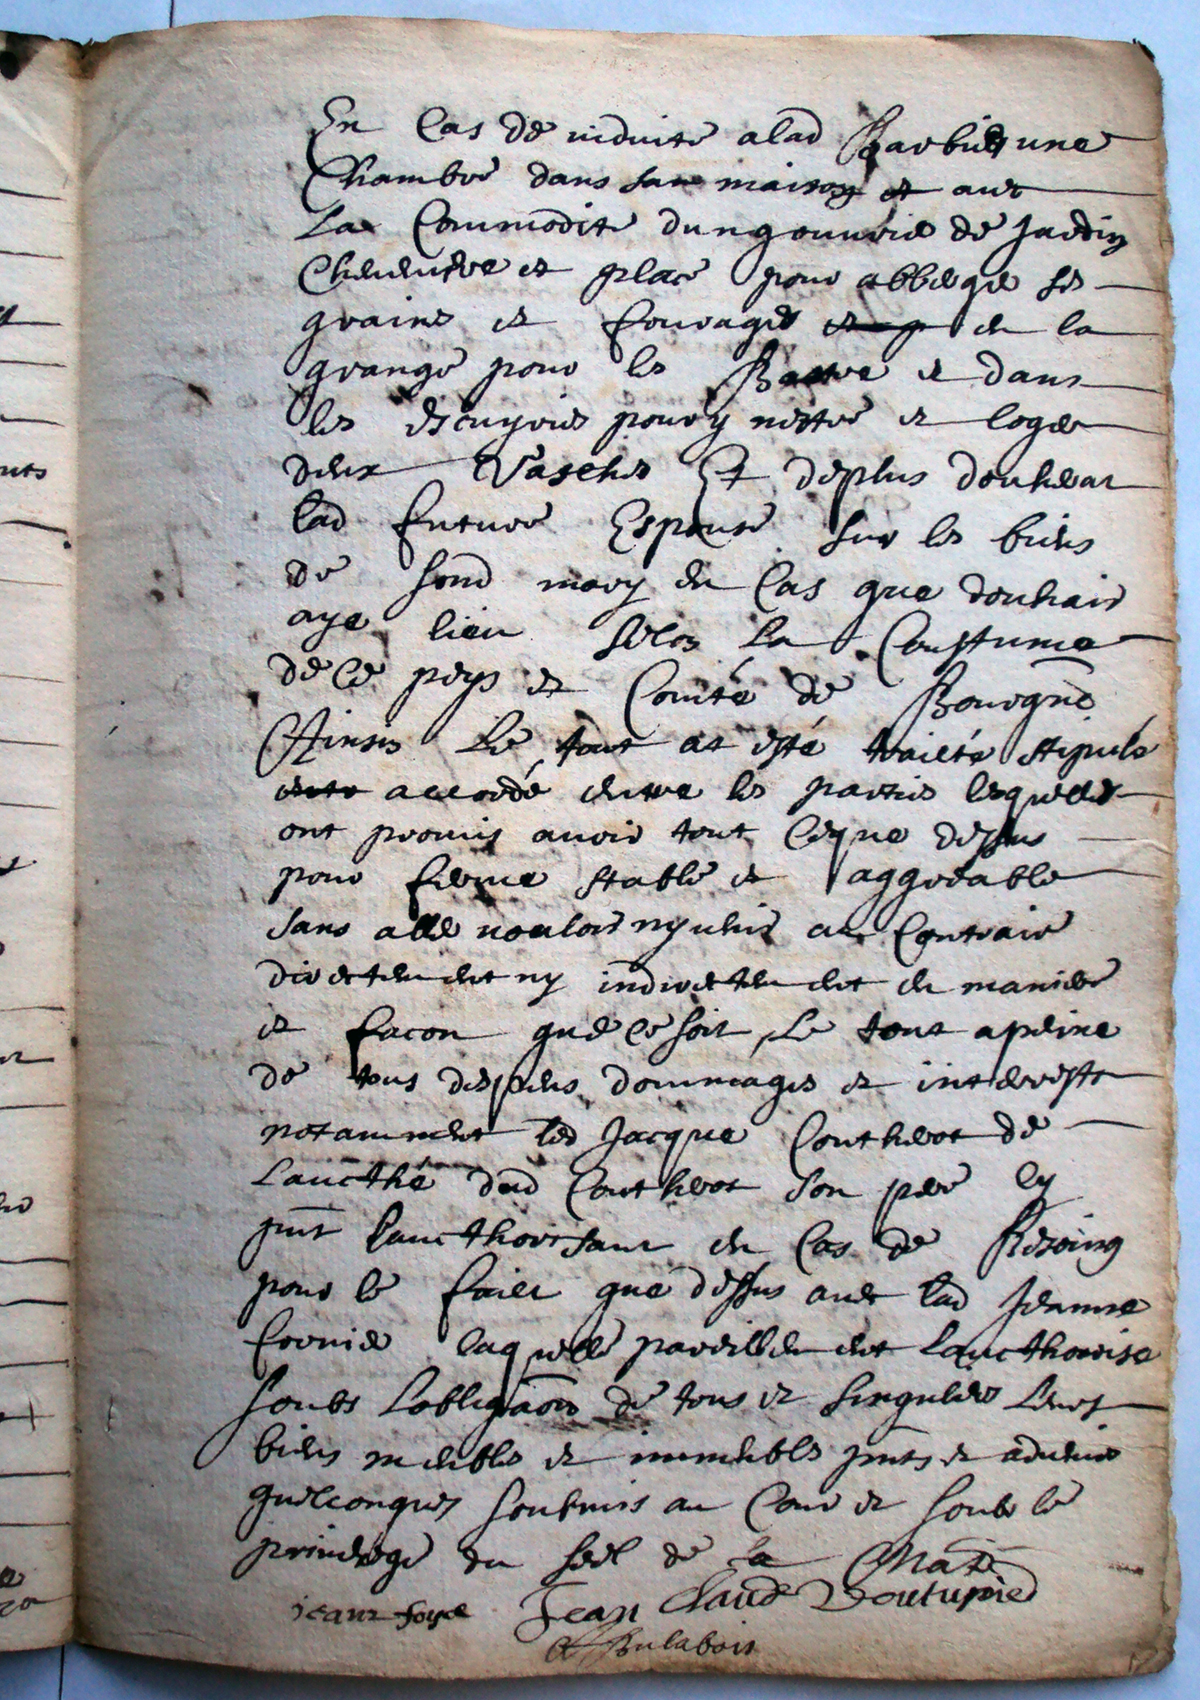 En Cas de viduité a lad Barbe une
Chambre dans sa maison et auec
La Commodité dung de Jardin
Cheneviere et place pour abberge ses
grains et fourages en la
grange pour les Battre et dans
les escuyries pour y mettre et loger
deux Vaches Et deplus douhera
lad future Espouse sur les biens
de sond mary en Cas que douhaire
aye lieu selon la Coustume
de ce pays et Comté de Bourgne
Ainsi Le tout at esté traicté stipulé
accordé entre les parties lesquelles
ont promis auoir tout ceque dessus
pour ferme stable et aggreable
sans alle vouloir ny venir au Contraire
directement ny indirectement en maniere
et facon que ce soit, Le tout a peine
de tous despens dommages et interestz
notamment led Jacque de
Laucthé dud son pere cy
pnt Laucthorisant en Cas de Besoing
pour le faict que dessus auec lad Jeanne
laquelle pareillement Laucthorise
soubs Lobligaon de tous et singuliers Leurs
biens meubles et immeubles pnts et aduenir
quelconques soubmis au Cour et soub le
priuilege du seel de sa Maté
Jean Claude